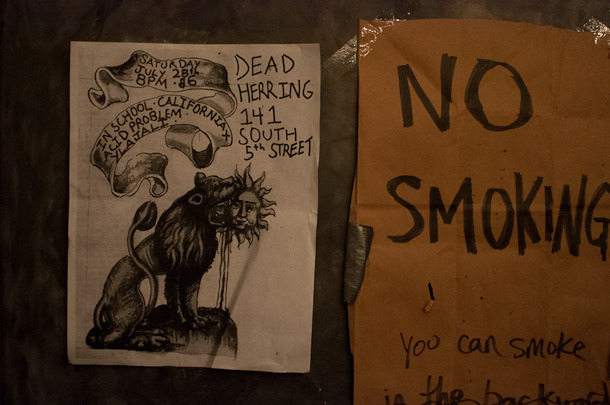 SATURDAY
JULY 28th
8PM · $6
IN SCHOOL · CALIFORNIA X
ACID PROBLEM ·
YLAJALI ·
DEAD
HERRING
141
SOUTH
5th STREET
NO
SMOKING
You can smoke
in the